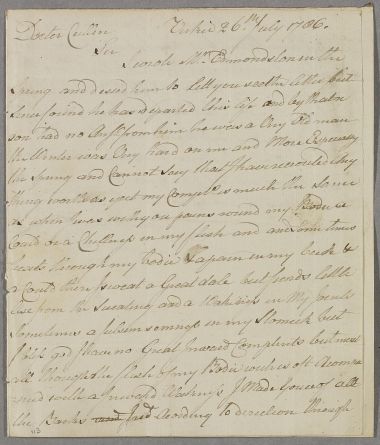 Docter Cullen Uickie 26th July 1786.
Sir
I wrote Mr. Edmondston in the
Spring and desired him to lett you see the letter but
since found he has departed this life and by that
son had no Ansr from him he was a Very old man
the Winter was Very hard on me and More Especially
the Spring and Cannot Say that I have recovred any
thing worth as yet my Complt is much the same
as when I was with you pains round my Bodie a
Could or a Chillness in my flesh and and some times
heats through my bodie & a pain in my back &
a Could then I sweat a Great dale but finds little
ease from the Sweating and a Wakness in My Joints
Sometimes a in my Stomick but
God I have no Great Inward Complents but most
all through the flesh of my Bodie outher oft Accompa
nied with a Inward Waikness I Made Use of all
the Barks and acording to direction through
113